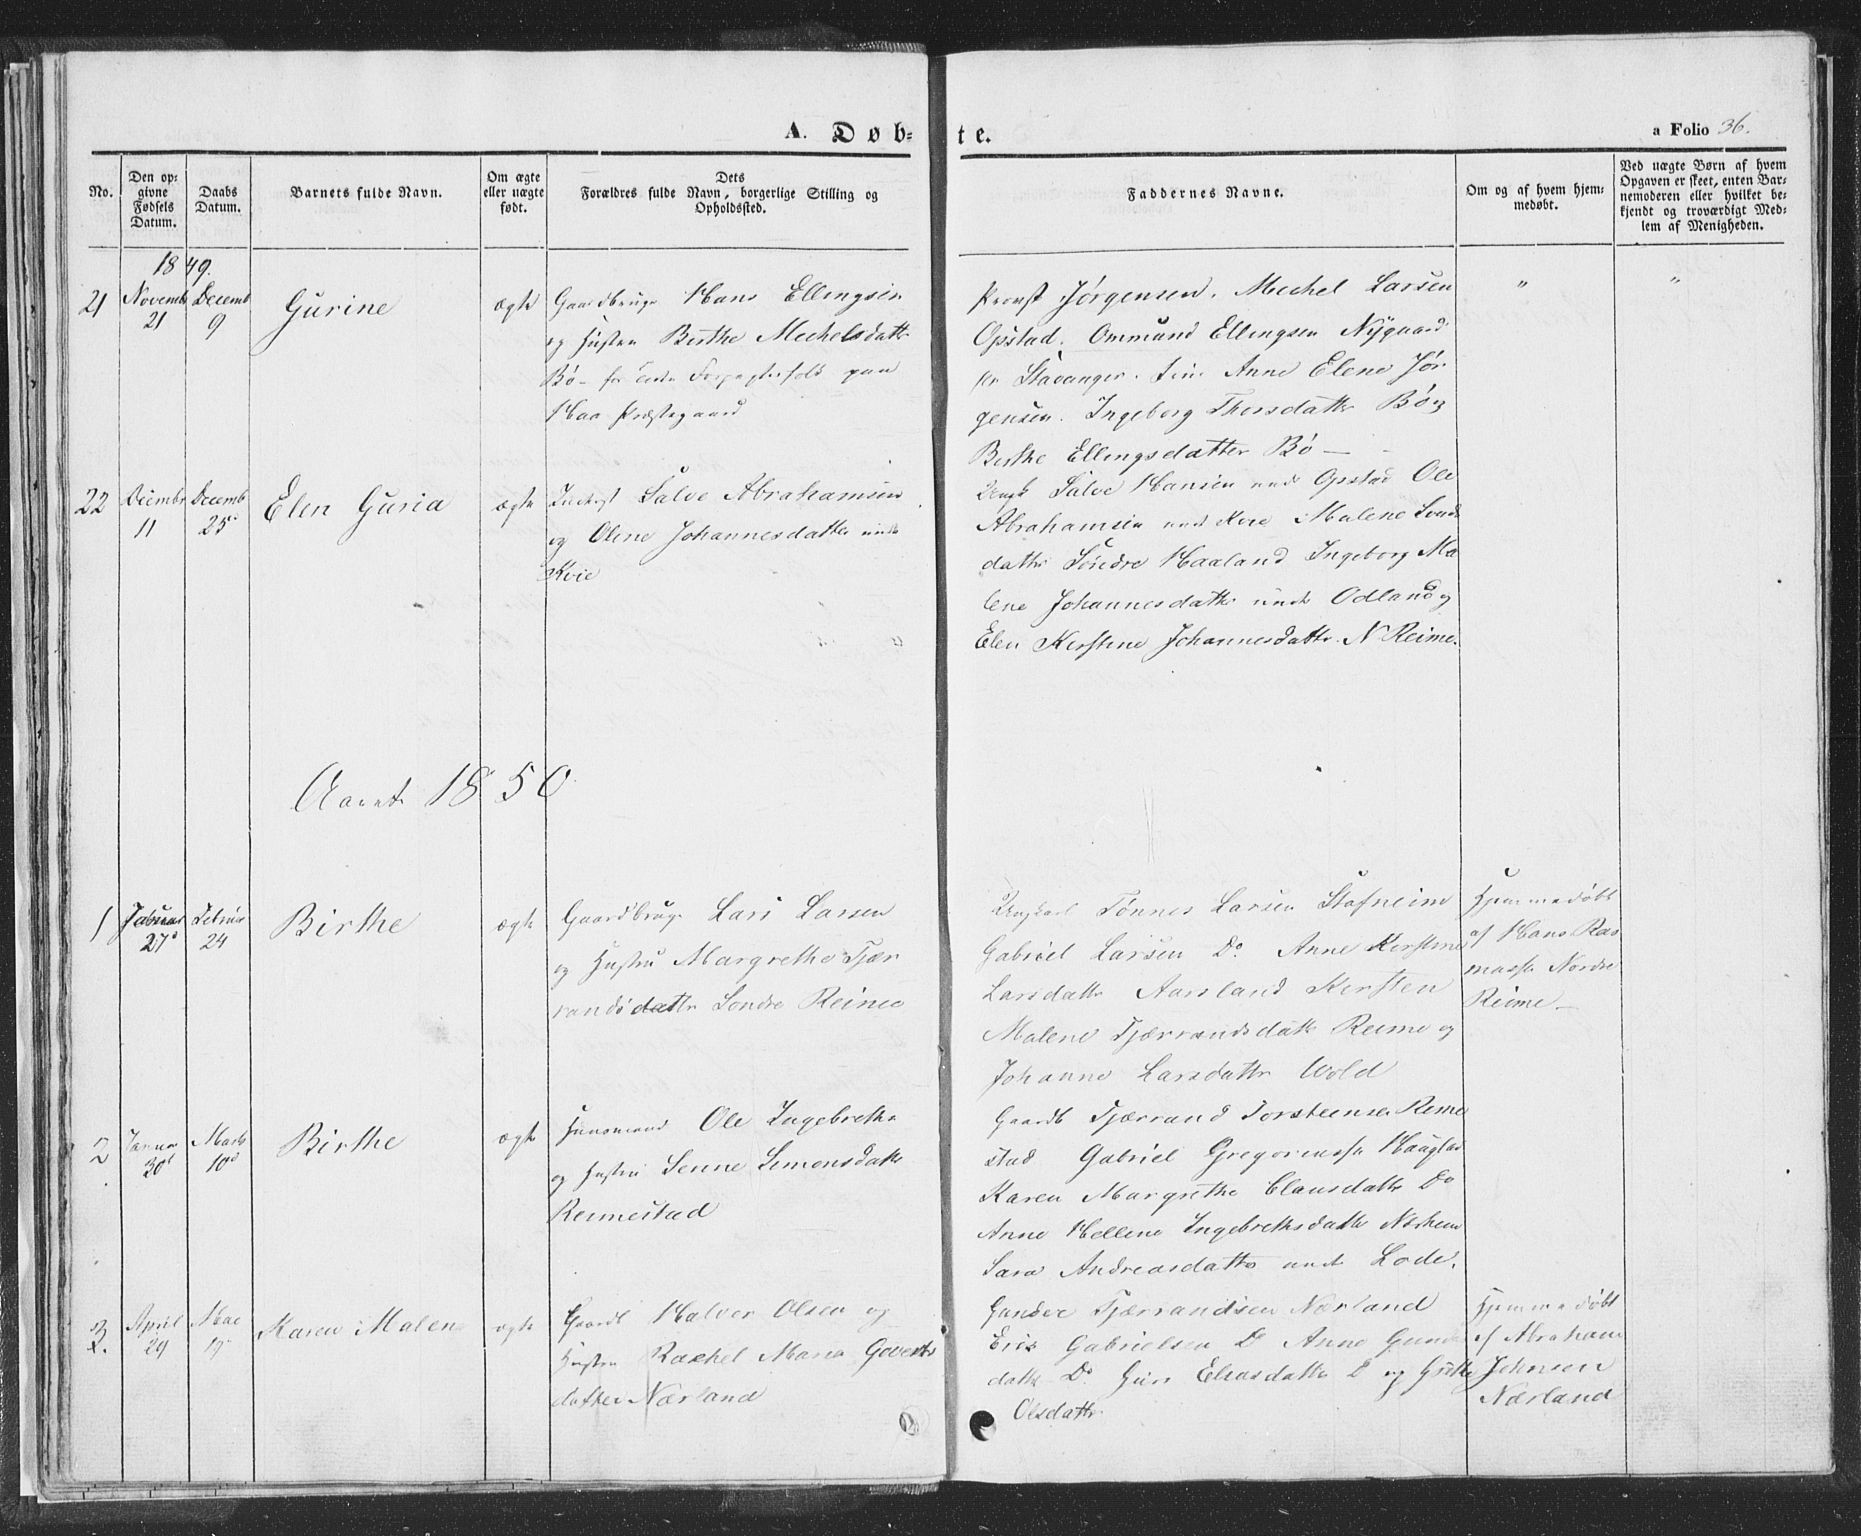 A. Døb-
te.
a Folio 36.
No.
Den op-
givne
Fødsels
Datum.
Daabs
Datum.
Barnets fulde Navn.
Om ægte
eller uægte
født.
Dets
Forældres fulde Navn, borgerlige Stilling og
Opholdssted.
Faddernes Navne.
Om og af hvem hjem-
medøbt.
Ved uægte Børn af hvem
Opgaven er skeet, enten Bar-
nemoderen eller hvilket be-
kjendt og troværdigt Med-
lem af Menigheden.
1849.
21
Novemb
21
Decemb
9
Gurine
ægte
Gaardbruger Hans Ellingsen
og Hustru Birthe Michelsdatter
Bø - for
paa
Haa Præstegaard
Provst Jørgensen. Michel Larsen
Opstad. Ommund Ellingsen Nygaard
Stavanger. Anne Elene Jør
gensen. Ingeborg Thorsdatter Bø og
Birthe Ellingsdatter Bø —
"
"
22
Decembr
11
Decemb
25
Elen Guria
ægte
Salve Abrahamsen
og Oline Johannesdatter under
Kvie
Ungk Salve Hansen under Opstad Ole
Abrahamsen under Kvie Malene
datter Søndre Haaland Ingeborg Ma
lene Johannesdatter under Odland og
Elen Kerstine Johannesdatter N Reime.
Aaret 1850
1
Januar
27
Februar
24
Birthe
ægte
Gaardbruger Lars Larsen
og Hustru Margrethe Tjær
randsdatter Søndre Reime
Ungkarl Tønnes Larsen Stafneim
Gabriel Larsen Do. Anne Kerstine
Larsdatter Aarsland Kersten
Malene Tjærrandsdatter Reime og
Johanne Larsdatter Wold
Hjemmedøbt
af Hans Ras
massen Nordre
Reime —
2
Januar
30
Marts
10
Birthe
ægte
Huusmand Ole Ingebrethsen
og Hustru Senne Simonsdatter
Reimestad
Gaardb Tjærrand Torsteinsen Reime
stad Gabriel Gregoriussen Haugland
Karen Margrethe Clausdatter Do
Anne Hellene Ingebrethsdatter Nærheim
Sara Andreasdatter under Lode.
3
April
29
Mai
19
Karen Malene
ægte
Gaardb Halvor Olsen og
Hustru Rachel Maria Goverts
datter Nærland
Gunder Tjærrandsen Nærland
Eric Gabrielsen Do Anne
datter Do. Guri Eliasdatter Do og Grethe
Olsdatter
Hjemmedøbt
af Abraham
Johnsen
Nærland